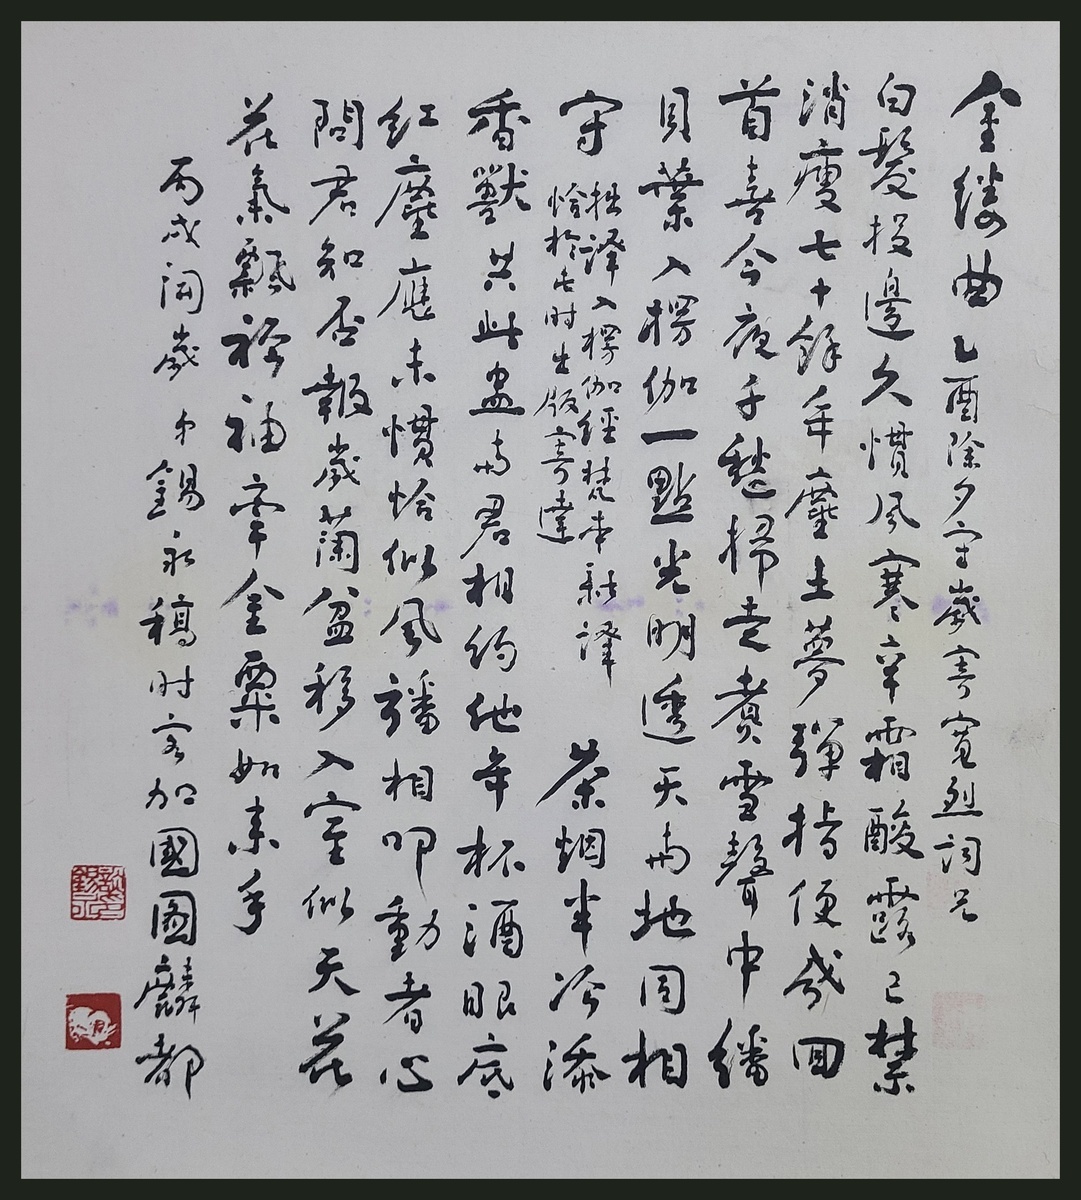 金縷曲 乙酉除夕守歲寄寬烈詞兄
白髮投邊久慣風寒辛霜酸露已禁
消瘦七十餘年塵土夢彈指便成回
首喜今夜千愁掃走煮雪聲中繙
貝葉入楞伽一點光明透天與地同相
守 拙譯入楞伽經梵本新譯
恰於此时出版寄達
茶烟半冷添
香獸共此盞與君相約他年杯酒眼底
紅塵應未慣恰似風旛相叩動者心
問君知否報歲蘭盆移入室似天花
花氣飄襟袖牽金粟如來手
丙戌開歲 弟錫永稿时客加國圖麟都